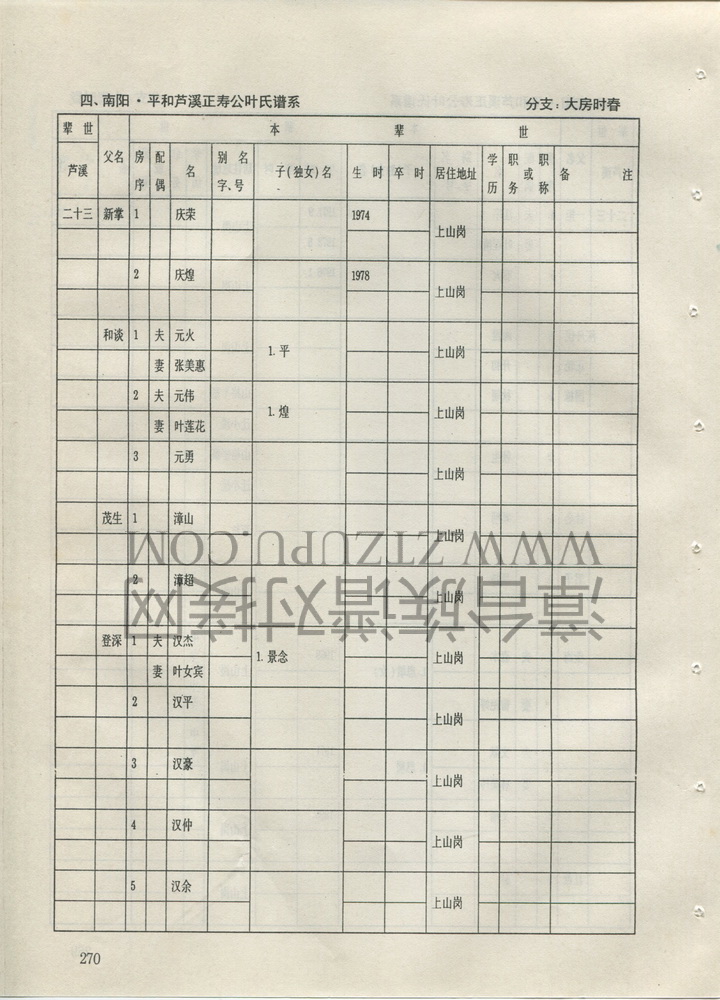 四、南阳·平和芦溪正寿公叶氏谱系 分支：大房时春
辈世 本辈世
芦溪 父名 房序 配偶 名 别名字、号 子(独女)名 生时 卒时 居住地址 学历 职务或职称 备注
二十三 新掌 1 庆荣 1974 上山岗
2 庆煌 1978 上山岗
和谈 1 夫 元火 1.平 上山岗
妻 张美惠
2 夫 元伟 1.煌 上山岗
妻 叶莲花
3 元勇 上山岗
茂生 1 漳山 上山岗
2 漳超 上山岗
登深 1 夫 汉杰 1.景念 上山岗
妻 叶女宾
2 汉平 上山岗
3 汉豪 上山岗
4 汉仲 上山岗
5 汉余 上山岗
270
WWW.ZTZUPU.COM
漳台族谱对接网